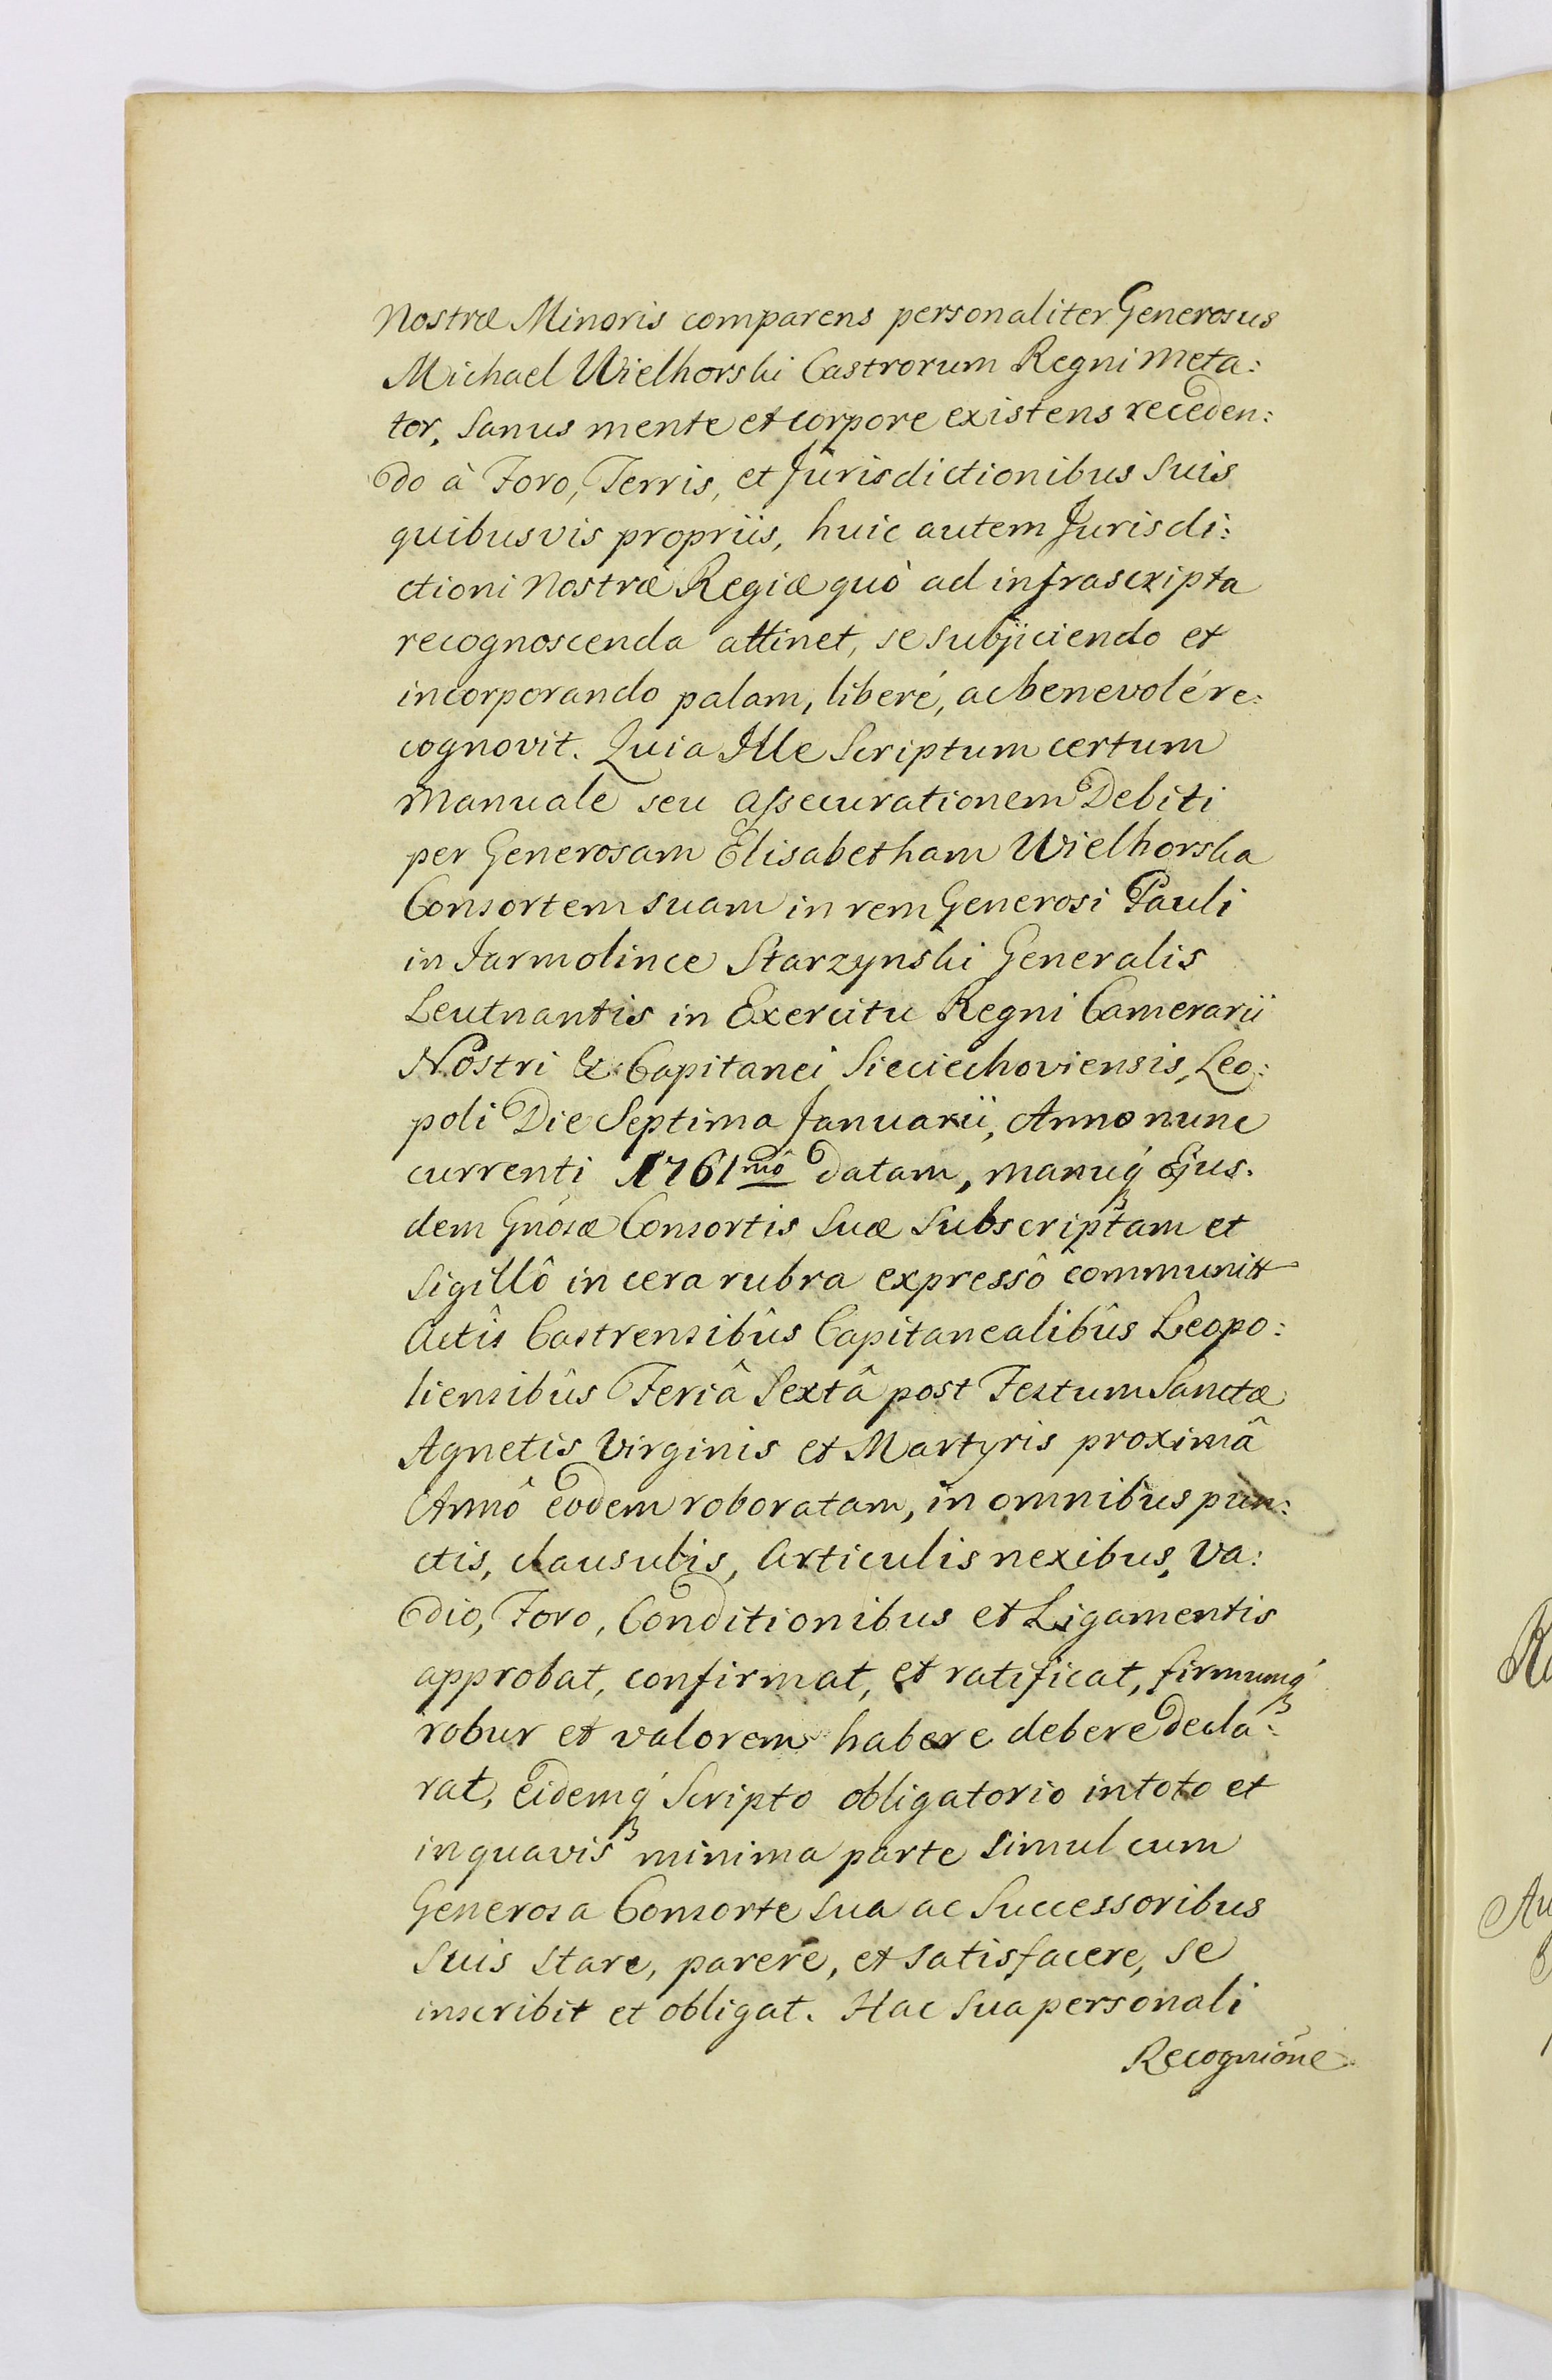 Nostræ Minoris comparens personaliter Generosus
Michael Wielhorski Castrorum Regni Meta:
tor, Sanus mente et corpore existens receden:
do à Foro, Terris, et Jurisdictionibus Suis
quibusvis propriis, huic autem Jurisdi:
ctioni Nostræ Regiæ quò ad infrascripta
recognoscenda attinet, se subijciendo et
incorporando palam, liberé, ac benevolé re:
cognovit. Quia Ille Scriptum certum
Manuale seu Assecurationem Debiti
per Generosam Elisabetham Wielhorska
Consortem suam in rem Generosi Pauli
in Jarmolince Starzynski Generalis
Leutnantis in Exercitu Regni Camerarii
Nostri & Capitanei Sieciechoviensis, Leo:
poli Die Septima Januarii, Anno nunc
currenti 1761mô datam, manuq́ Ejus.
dem Gnósæ Consortis Suæ Subscriptam et
Sigillô in cera rubra expressô communitt
Actîs Castrensibûs Capitanealibûs Leopo:
liensibûs Feriâ Sextâ post Festum Sanctæ
Agnetis Virginis et Martyris proximâ
Annô eodem roboratam, in omnibus pun:
ctis, clausulis, Articulis nexibus, Va:
dio, Foro, Conditionibus et Ligamentis
approbat, confirmat, et ratificat, firmumq́
robur et valorem habere debere decla:
rat, Eidemq́ Scripto obligatorio in toto et
in quavis minima parte simul cum
Generosa Consorte sua ac Successoribus
Suis stare, parere, et satisfacere, se
inscribit et obligat. Hac Sua personali
Recognióne